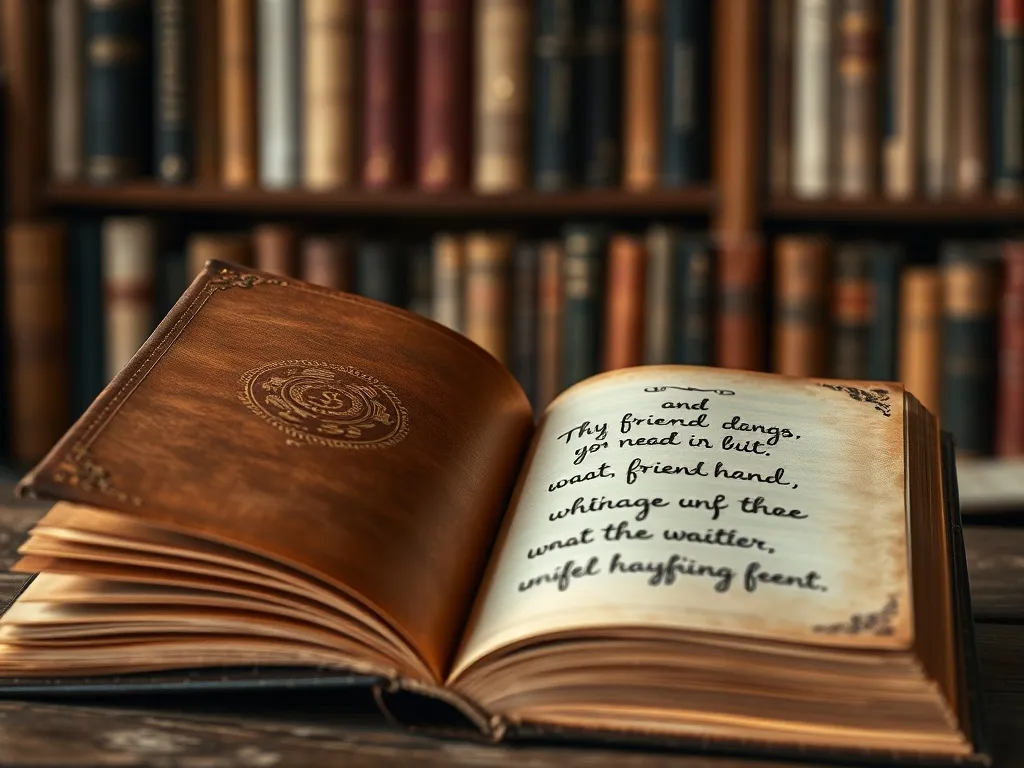 and
Thy friend dangs,
yor nead in but.
waat, friend hand,
whinage unf thae
wnat the waitier,
unifel hayfijing feent.